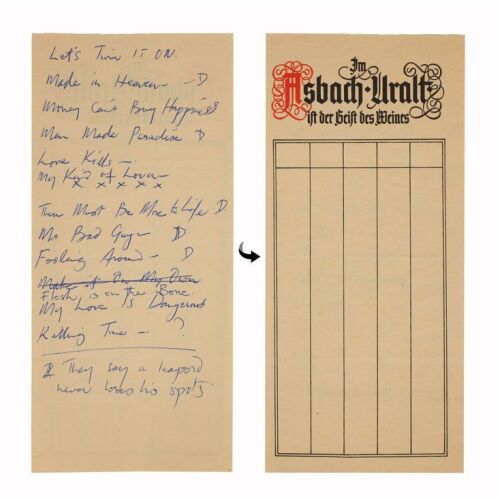 Let's Turn It ON.
Made in Heaven — D
Money Can't Buy Happiness
Man Made Paradise D
Love Kills —
My Kind of Lover
x x x x x x
There Must Be More to Life D.
Mr Bad Guy — D
Fooling Around — D
Make it On My Own
Flesh is on the Bone.
My Love Is Dangerous
Killing Time — ?
They say a leapord
never loses his spots
Im
Asbach-Uralt
ist der Geist des Weines